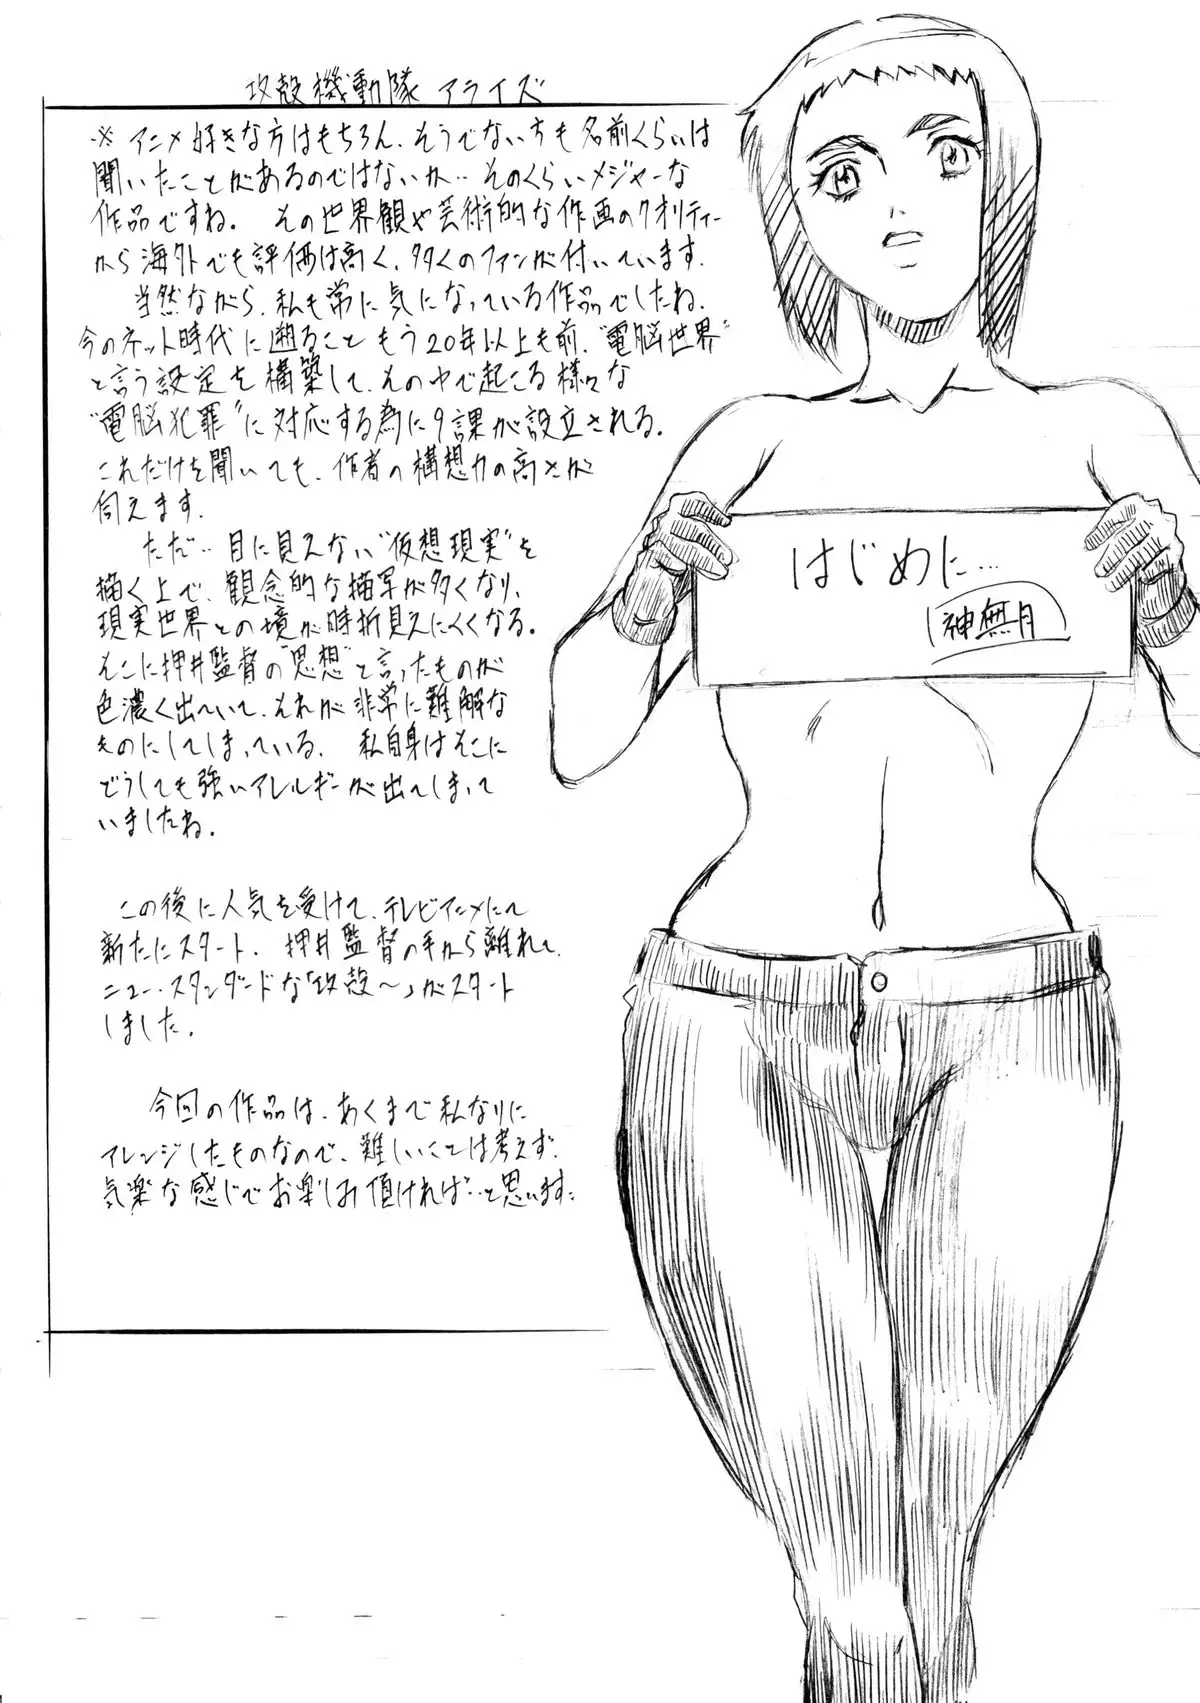 攻殻機動隊 アライズ
※ アニメ好きな方はもちろん、そうでない方も名前くらいは
聞いたことがあるのではないか‥ そのくらいメジャーな
作品ですね。 その世界観や芸術的な作画のクオリティー
から海外でも評価は高く、多くのファンが付いています。
当然ながら、私も常に気になっている作品でしたね、
今のネット時代に遡ること もう20年以上も前、"電脳世界"
と言う設定を構築して、その中で起こる様々な
"電脳犯罪"に対応する為に9課が設立される。
これだけを聞いても、作者の構想力の高さが
伺えます。
ただ‥ 目に見えない"仮想現実"を
描く上で、観念的な描写が多くなり、
現実世界との境が時折見えにくくなる。
そこに押井監督の"思想"と言ったものが
色濃く出ていて、それが非常に難解な
ものにしてしまっている。 私自身はそこに
どうしても強いアレルギーが出てしまって
いましたね。
この後に人気を受けて、テレビアニメにて
新たにスタート、押井監督の手から離れて、
ニュー・スタンダードな「攻殻〜」がスタート
しました。
今回の作品は、あくまで私なりに
アレンジしたものなので、難しいことは考えず、
気楽な感じでお楽しみ頂ければ‥と思います。
はじめに…
神無月